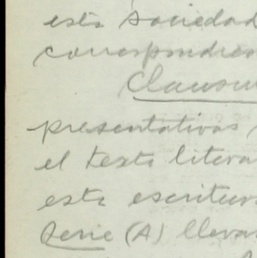 esta sociedad
correspondien
Clausu
presentativas,
el texto litera
esta escritura
Serie (A) lleva